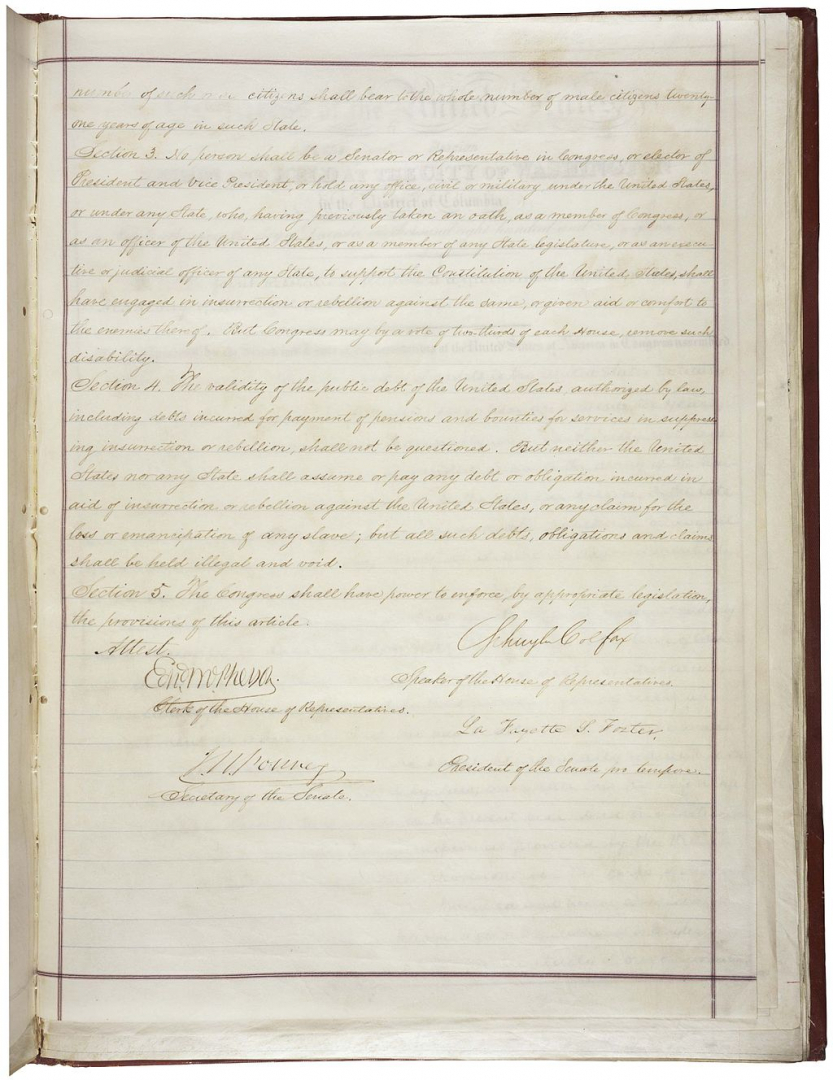 number of such male citizens shall bear to the whole number of male citizens twenty-
one years of age in such State.
Section 3. No person shall be a Senator or Representative in Congress, or elector of
President and Vice President, or hold any office, civil or military under the United States,
or under any State, who, having previously taken an oath, as a member of Congress, or
as an officer of the United States, or as a member of any State legislature, or as an execu-
tive or judicial officer of any State, to support the Constitution of the United States, shall
have engaged in insurrection or rebellion against the same, or given aid or comfort to
the enemies thereof. But Congress may by a vote of two-thirds of each House, remove such
disability.
Section 4. The validity of the public debt of the United States, authorized by law,
including debts incurred for payment of pensions and bounties for services in suppress-
ing insurrection or rebellion, shall not be questioned. But neither the United
States nor any State shall assume or pay any debt or obligation incurred in
aid of insurrection or rebellion against the United States, or any claim for the
loss or emancipation of any slave; but all such debts, obligations and claims
shall be held illegal and void.
Section 5. The Congress shall have power to enforce, by appropriate legislation,
the provisions of this article.
Schuyler Colfax
Attest.
Edwd McPherson.
Speaker of the House of Representatives.
Clerk of the House of Representatives.
La Fayette S. Foster,
J. W. Forney
President of the Senate pro tempore.
Secretary of the Senate.